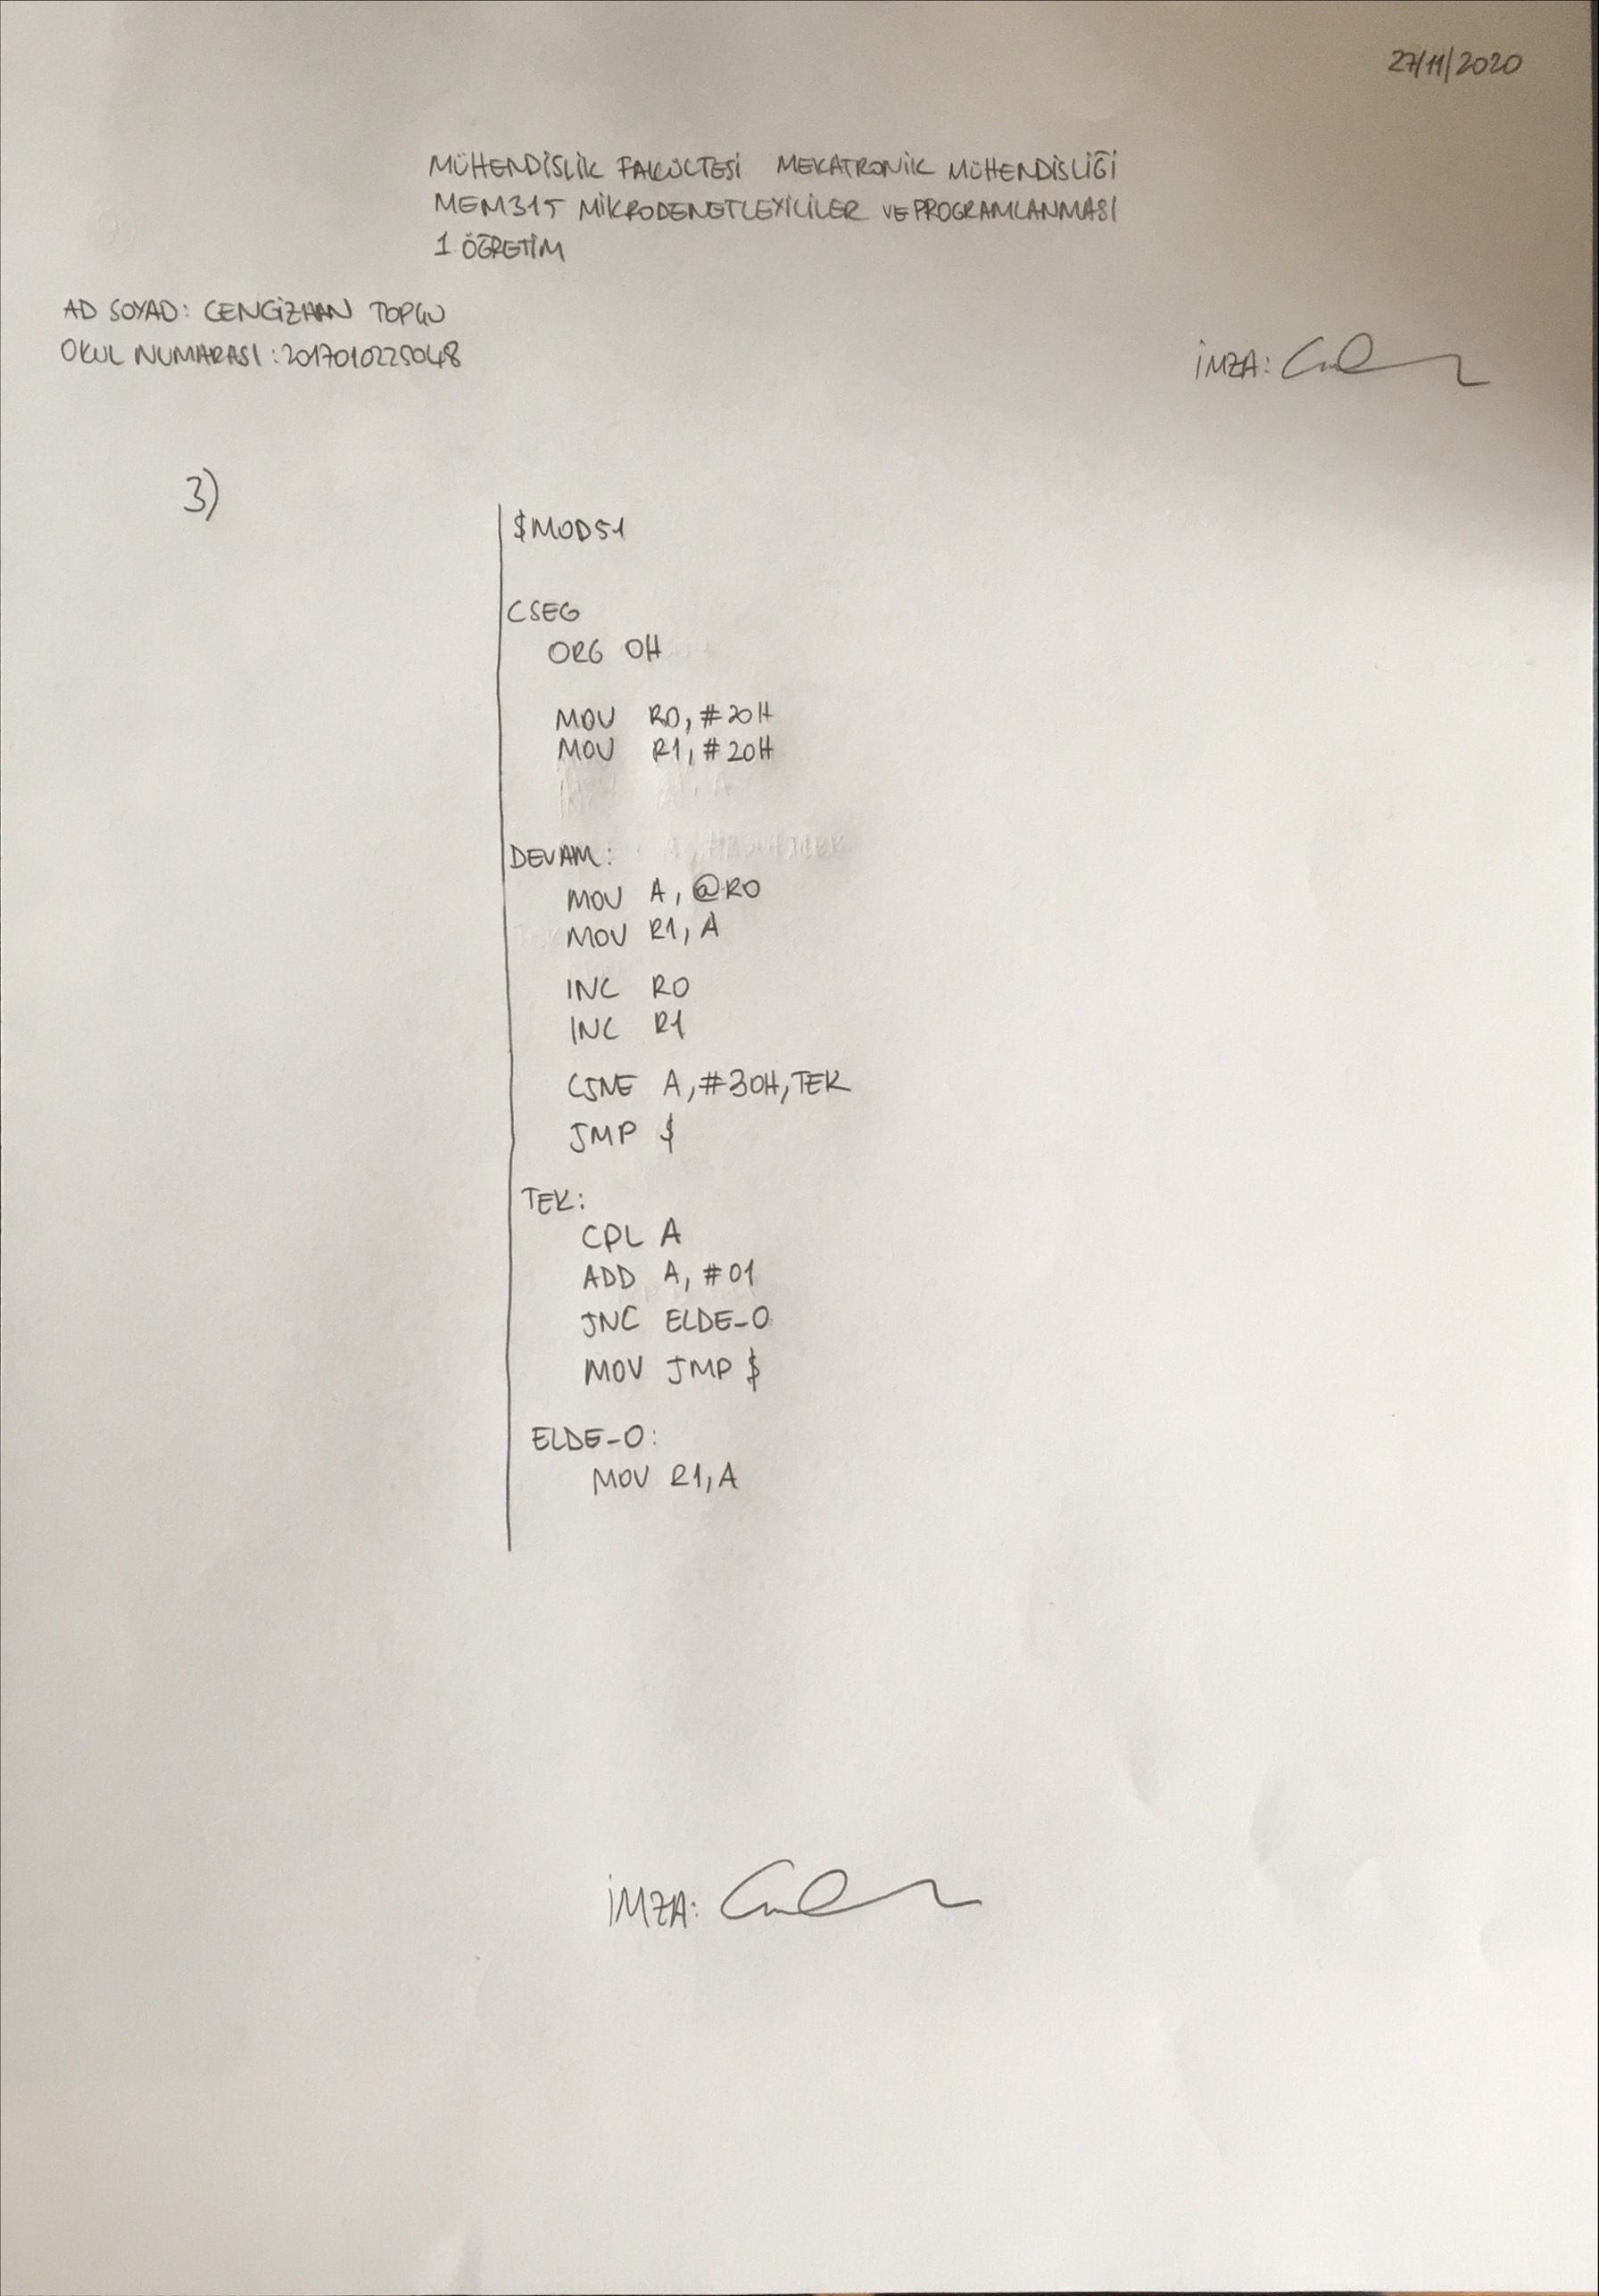 27/11/2020
MÜHENDİSLİK FAKÜLTESİ MEKATRONİK MÜHENDİSLİĞİ
MEM315 MİKRODENETLEYİCİLER VE PROGRAMLANMASI
1. ÖĞRETİM
AD SOYAD: CENGİZHAN TOPÇU
OKUL NUMARASI: 2017010225048
İMZA:
3)
$MOD51
CSEG
ORG 0H
MOV R0, #20H
MOV R1, #20H
DEVAM:
MOV A, @R0
MOV R1, A
INC R0
INC R1
CJNE A, #30H, TEK
JMP $
TEK:
CPL A
ADD A, #01
JNC ELDE-0
MOV JMP $
ELDE-0:
MOV R1, A
İMZA: